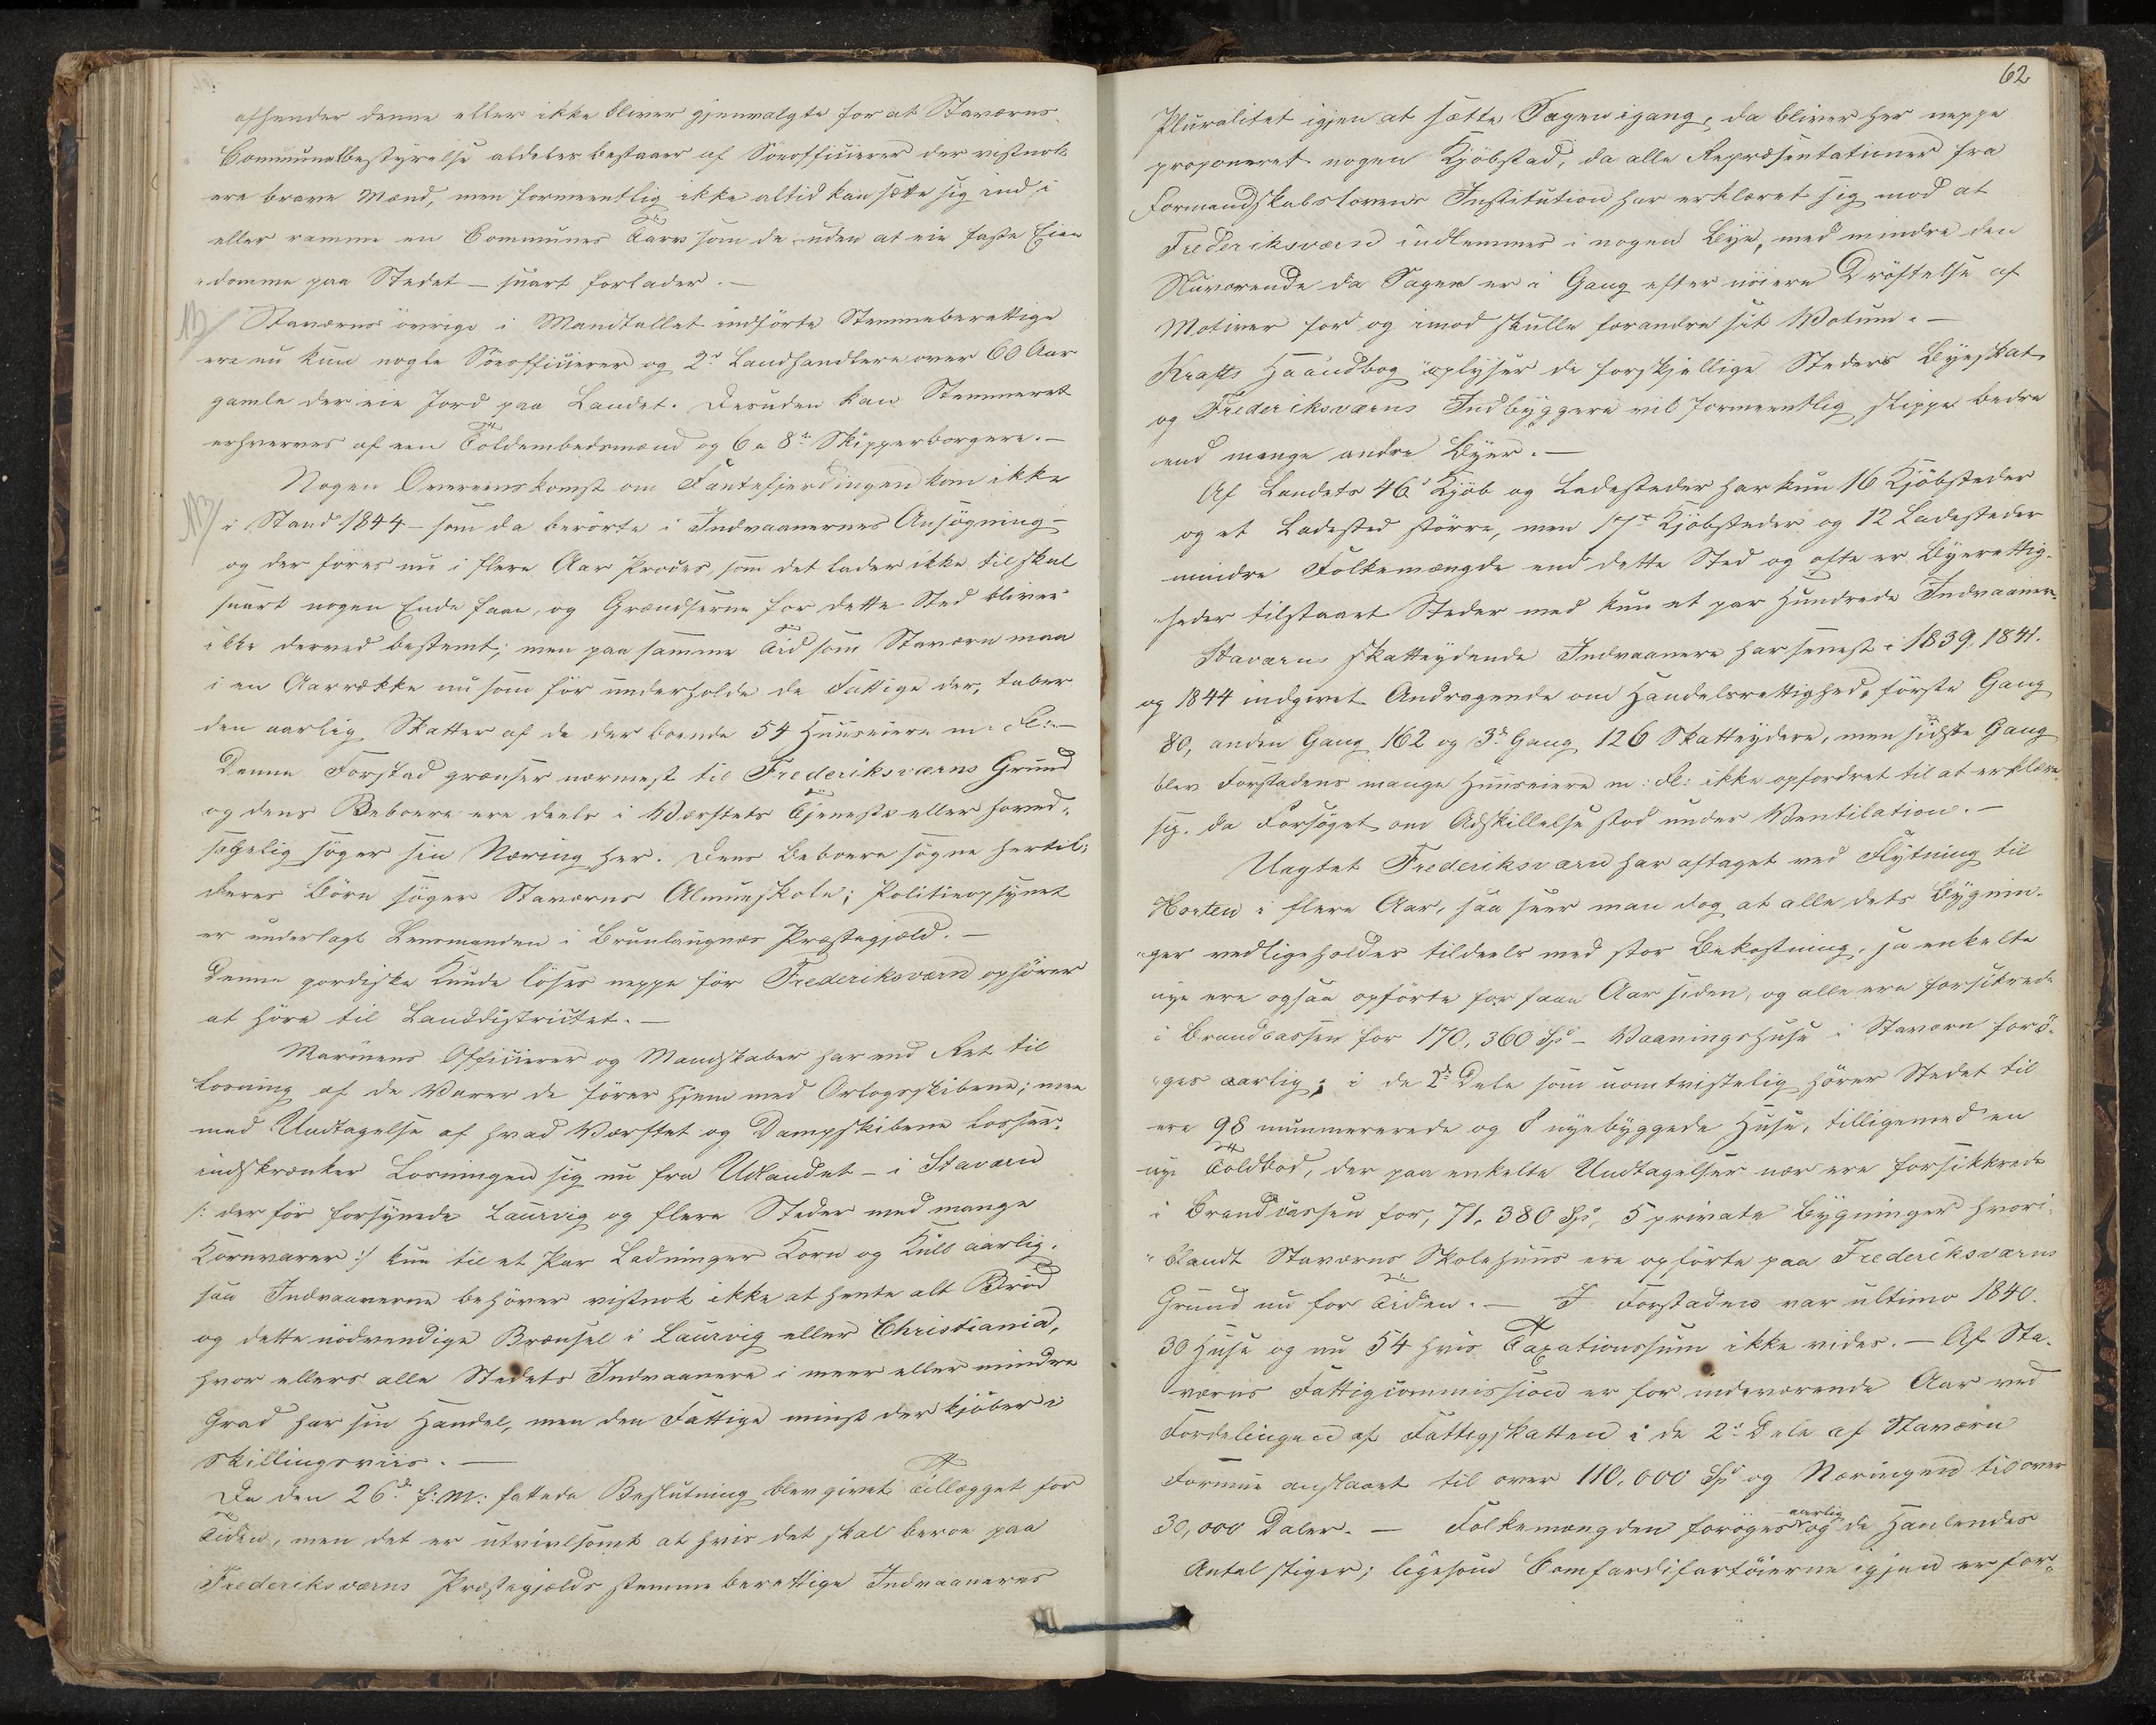 afhender denne eller ikke bliver gjenvalgte for at Staværns
Communalbestyrelse aldeles bestaaer af Söeofficierer der vistnok
ere brave Mænd, men formeentlig ikke altid kan sætte sig ind i
eller ramme en Communes Tarv som de uden at eie faste Eien
domme paa Stedet – snart forlader. –
NB Staværns övrige i Mandtallet indförte Stemmeberettige
ere nu kun nogle Söeofficierer og 2de Landhandlere over 60 Aar
gamle der eie Jord paa Landet. Desuden kan Stemmeret
erhverves af een Toldembedsmand og 6 a 8te Skipperborgere. –
Nogen Overeenskomst om Fantefjerdingen kom ikke
NB i Stand 1844 – som da berörte i Indvaanernes Ansögning –
og der föres nu i flere Aar Proces, som det lader ikke til skal
snart nogen Ende faae, og Grændserne for dette Sted bliver
ikke derved bestemt; men paa samme Tid som Staværn maa
i en Aarrække nu som för underholde de Fattige der, taber
den aarlig Skatter af de der boende 54 Huuseiere m. fl: –
Denne Forstad grænser nærmest til Frederiksværns Grund
og dens Beboere ere deels i Værftets Tjeneste eller hoved-
sagelig söger sin Næring her. Dens Beboere sogne hertil;
deres Börn söger Staværns Almueskole; Politieopsynet
er underlagt Lensmanden i Brunlaugnæs Præstegjæld. –
Denne gordiske Knude löses neppe för Frederiksværn ophörer
at höre til Landdistrictet. –
Marinens Officierer og Mandskaber har end Ret til
Losning af de Varer de förer hjem med Orlogsskibene; men
med Undtagelse af hvad Værftet og Dampskibene losser,
indskrænker Losningen sig nu fra Udlandet – i Staværn
/: der för forsynede Laurvig og flere Steder med mange
Kornvarer :/ kun til et Par Ladninger Korn og Kull aarlig.
saa Indvaanerne behöver vistnok ikke at hente alt Bröd
og dette nödvendige Brænsel i Laurvig eller Christiania,
hvor ellers alle Stedets Indvaanere i meer eller mindre
Grad har sin Handel, men den Fattige minst der kjöber i
Skillingsviis. –
Da den 26de f: M: fattede Beslutning blev givet Tillægget for
Tiden, men det er utvivlsomt at hvis det skal beroe paa
Frederiksværns Præstegjælds stemmeberettige Indvaaneres
62
Pluralitet igjen at sætte Sagen igang, da bliver her neppe
proponeret nogen Kjöbstad, da alle Repræsentationer fra
Formandskabslovens Institution har erklæret sig mod at
Frederiksværn indlemmes i nogen Bye, med mindre den
Nuværende da Sagen er i Gang efter nöiere Dröftelse af
Motiver for og imod skulle forandre sit Votum. –
Krafts Haandbog oplyser de forskjellige Steders Byeskat
og Frederiksværns Indbyggere vil formeentlig slippe bedre
end mange andre Byer. –
Af Landets 46 Kjöb og Ladesteder har kun 16 Kjöbsteder
og et Ladested större, men 17 Kjöbsteder og 12 Ladesteder
mindre Folkemængde end dette Sted og ofte er Byerettig-
heder tilstaaet Steder med kun et par Hundrede Indvaaner.
Staværns skatteydende Indvaanere har senest i 1839, 1841.
og 1844 indgivet Andragende om Handelsrettighed, förste Gang
80, anden Gang 162 og 3de Gang 126 Skatteydere, men sidste Gang
blev Forstadens mange Huuseiere m: fl: ikke opfordret til at erklære
sig. da Forsöget om Adskillelse stod under Ventilation. –
Uagtet Frederiksværn har aftaget ved Flytning til
Horten i flere Aar, saa seer man dog at alle dets Bygnin-
ger vedligeholdes tildeels med stor Bekostning, ja enkelte
nye ere ogsaa opförte for faae Aar siden, og alle ere forsikrede
i Brandcassen for 170,360 Spd – Vaaningshuse i Staværn forö-
ges aarlig; i de 2de Dele som uomtvistelig hörer Stedet til
ere 98 nummererede og 8 nyebyggede Huse, tilligemed en
nye Toldbod, der paa enkelte Undtagelser nær ere forsikkrede
i Brandcassen for, 71,380 Spd, 5 private Bygninger hvori-
blandt Staværns Skolehuus ere opförte paa Frederiksværns
Grund nu for Tiden. – I Forstaden var ultimo 1840.
30 Huse og nu 54 hvis Taxationssum ikke vides. – Af Sta-
værns Fattigcommission er for indeværende Aar ved
Fordelingen af Fattigskatten i de 2de Dele af Staværn
Formue anslaaet til over 110,000 Spd og Næringen til over
30,000 Daler. – Folkemængden foröges aarlig og de Handlendes
Antal stiger; ligesom Comfardifartöierne igjen er for-